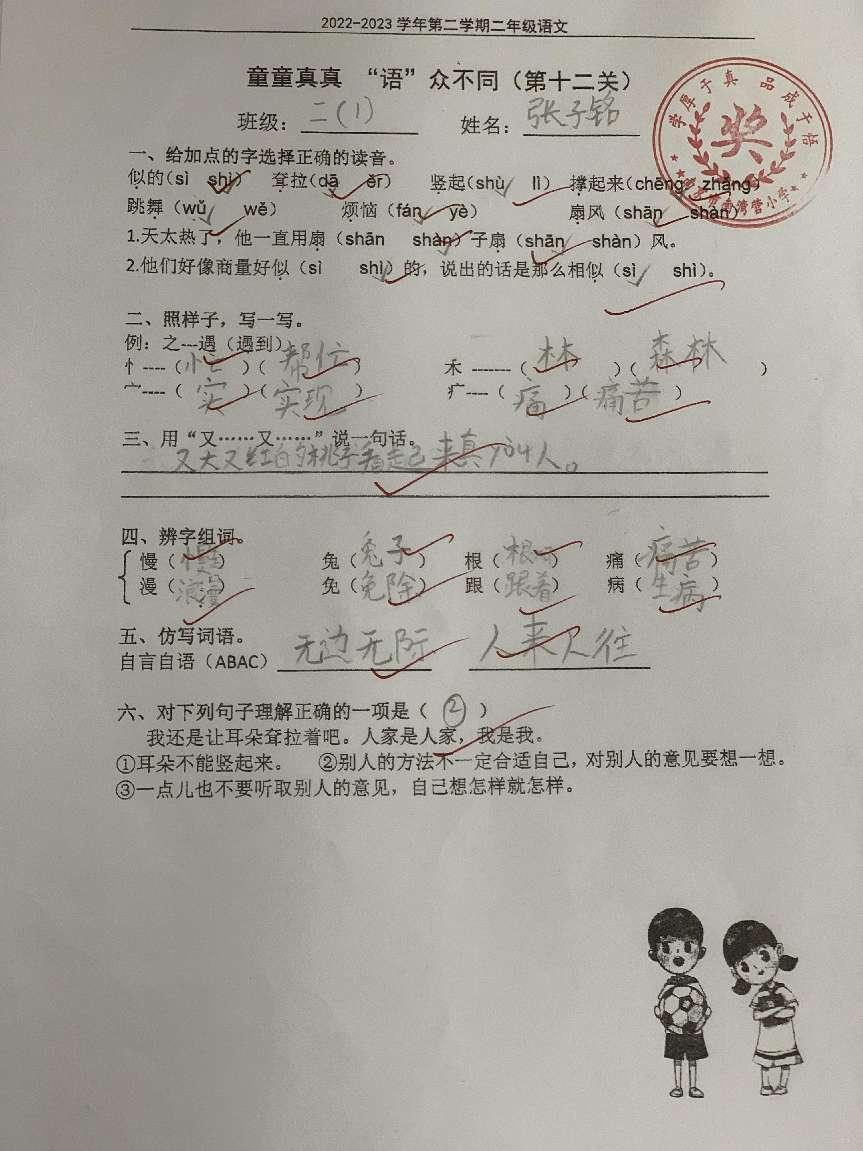 2022-2023 学年第二学期二年级语文
童童真真 “语”众不同（第十二关）
班级：二(1) 姓名：张子铭
学厚于真 品成于悟
奖
一、给加点的字选择正确的读音。
似的(sì shì) 耷拉(dā ěr) 竖起(shù lì) 撑起来(chēng zhǎng)
跳舞（wǔ wě） 烦恼（fán yè） 扇风（shān shàn）
1.天太热了，他一直用扇（shān shàn）子扇（shān shàn）风。
2.他们好像商量好似（sì shì）的，说出的话是那么相似（sì shì）。
二、照样子，写一写。
例：之---遇（遇到）
忄----（忙）（帮忙） 禾 -------（林）（森林）
宀----（实）（实现） 疒----（痛）（痛苦）
三、用“又……又……”说一句话。
又大又红的桃子看起来真 人。
四、辨字组词。
慢（慢） 兔（兔子） 根（根） 痛（痛苦）
漫（浪漫） 免（免除） 跟（跟着） 病（生病）
五、仿写词语。
自言自语（ABAC） 无边无际 人来人往
六、对下列句子理解正确的一项是（ ② ）
我还是让耳朵耷拉着吧。人家是人家，我是我。
①耳朵不能竖起来。 ②别人的方法不一定合适自己，对别人的意见要想一想。
③一点儿也不要听取别人的意见，自己想怎样就怎样。